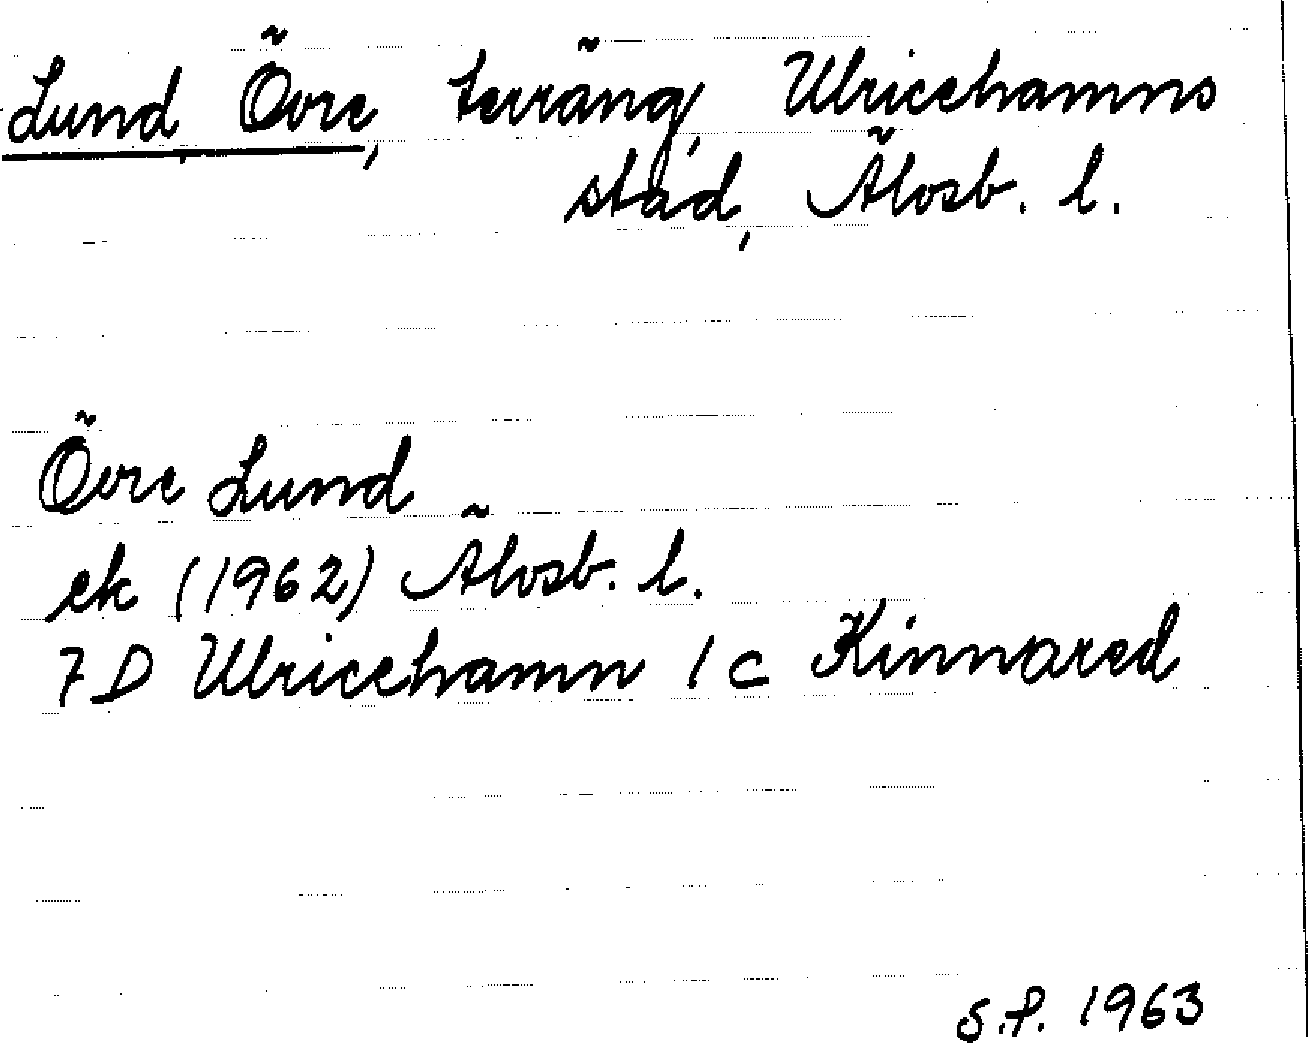 Lund, Övre, terräng, Ulricehamns
stad, Älvsb. l.
Övre Lund
ek (1962) Älvsb. l.
7D Ulricehamn 1 c Kinnared
S.P. 1963